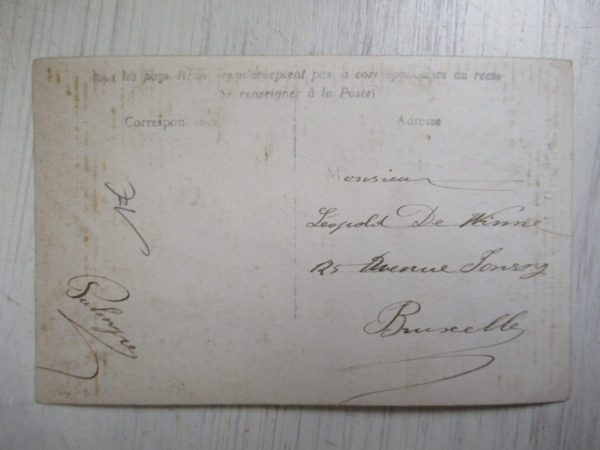 Tous les pays étrangers n'acceptent pas la correspondance au recto
(Se renseigner à la Poste)
Correspondance
Adresse
Monsieur
Leopold De Winne
125 Avenue
Bruxelles